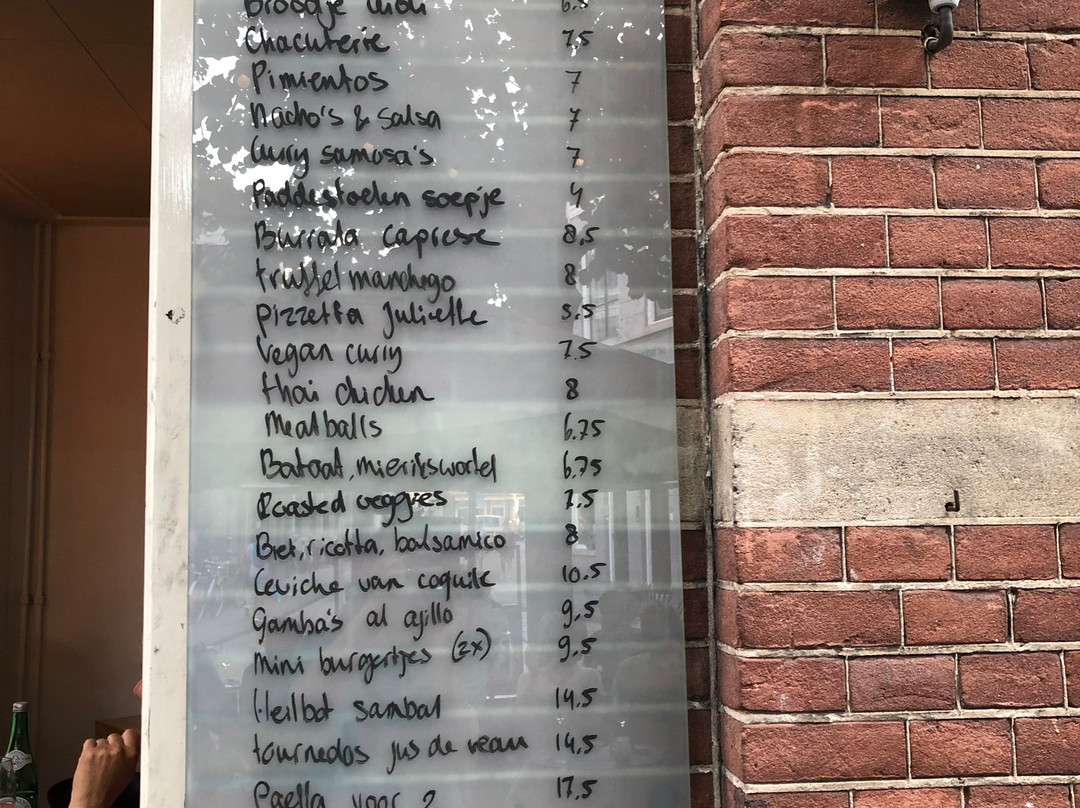 Broodje aioli 6.5
Chacuterie 7.5
Pimientos 7
Nacho's & salsa 7
Curry samosa's 7
Paddestoelen soepje 4
Burrata caprese 8.5
truffel manchego 8
pizzetta Juliette 5.5
Vegan curry 7.5
thai chicken 8
Meatballs 6.75
Bataat, mierikswortel 6.75
Roasted veggies 7.5
Biet, ricotta, balsamico 8
Ceviche van coquile 10.5
Gamba's al ajillo 9.5
mini burgertjes (2x) 9.5
Heilbot sambal 14.5
tournedos jus de veau 14.5
Paella voor 2 17.5